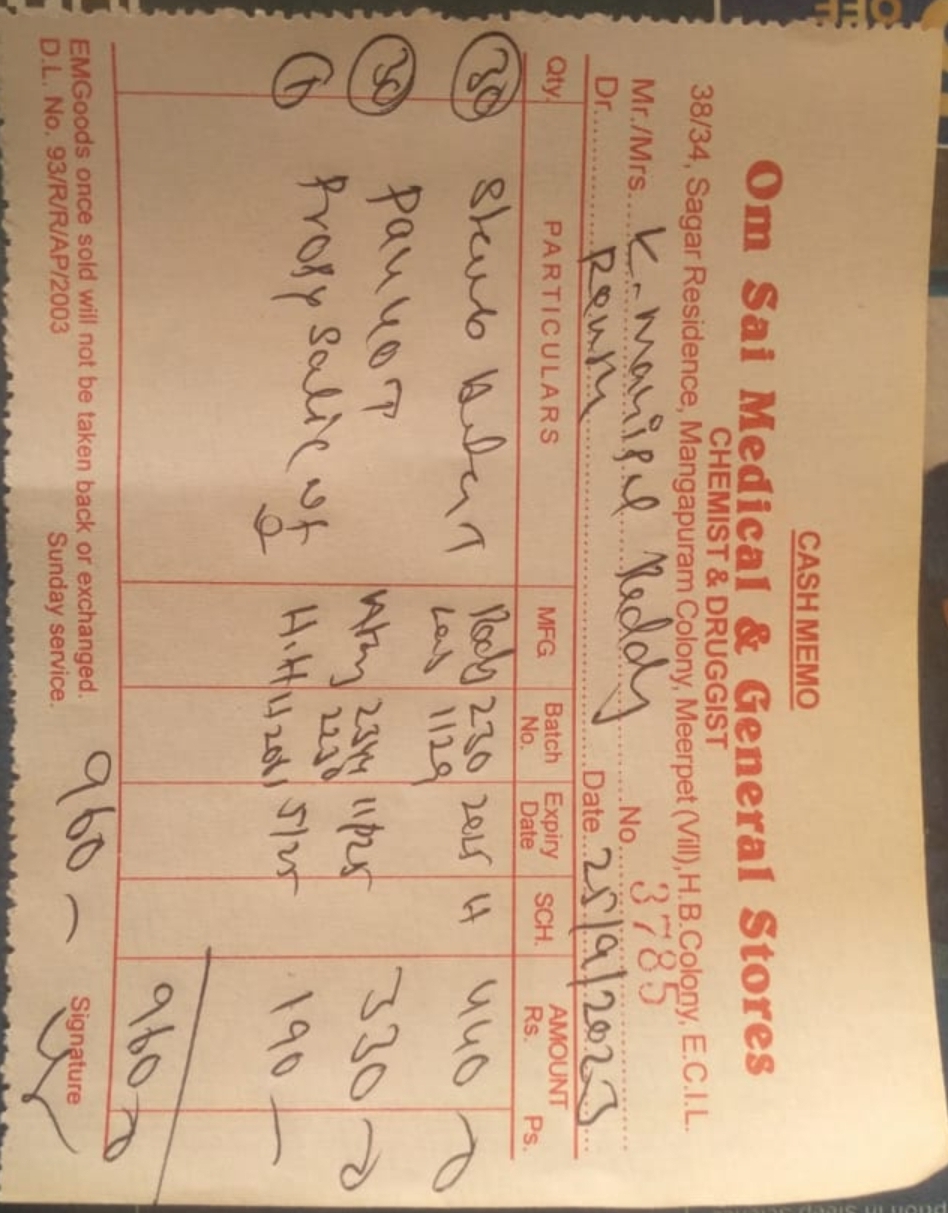 CASH MEMO
Om Sai Medical & General Stores
CHEMIST & DRUGGIST
38/34, Sagar Residence, Mangapuram Colony, Meerpet (Vill), H.B.Colony, E.C.I.L.
Mr./Mrs. K. Manipal Reddy No. 3785
Dr. Date. 25/9/2023
Qty. PARTICULARS MFG Batch No. Expiry Date SCH. AMOUNT Rs. Ps.
30 230 1129 2025 H 440
30 Pan 40 T 11/25 330
1 Salic 5/25 190
960
EMGoods once sold will not be taken back or exchanged.
D.L. No. 93/R/R/AP/2003 Sunday service. 960 Signature